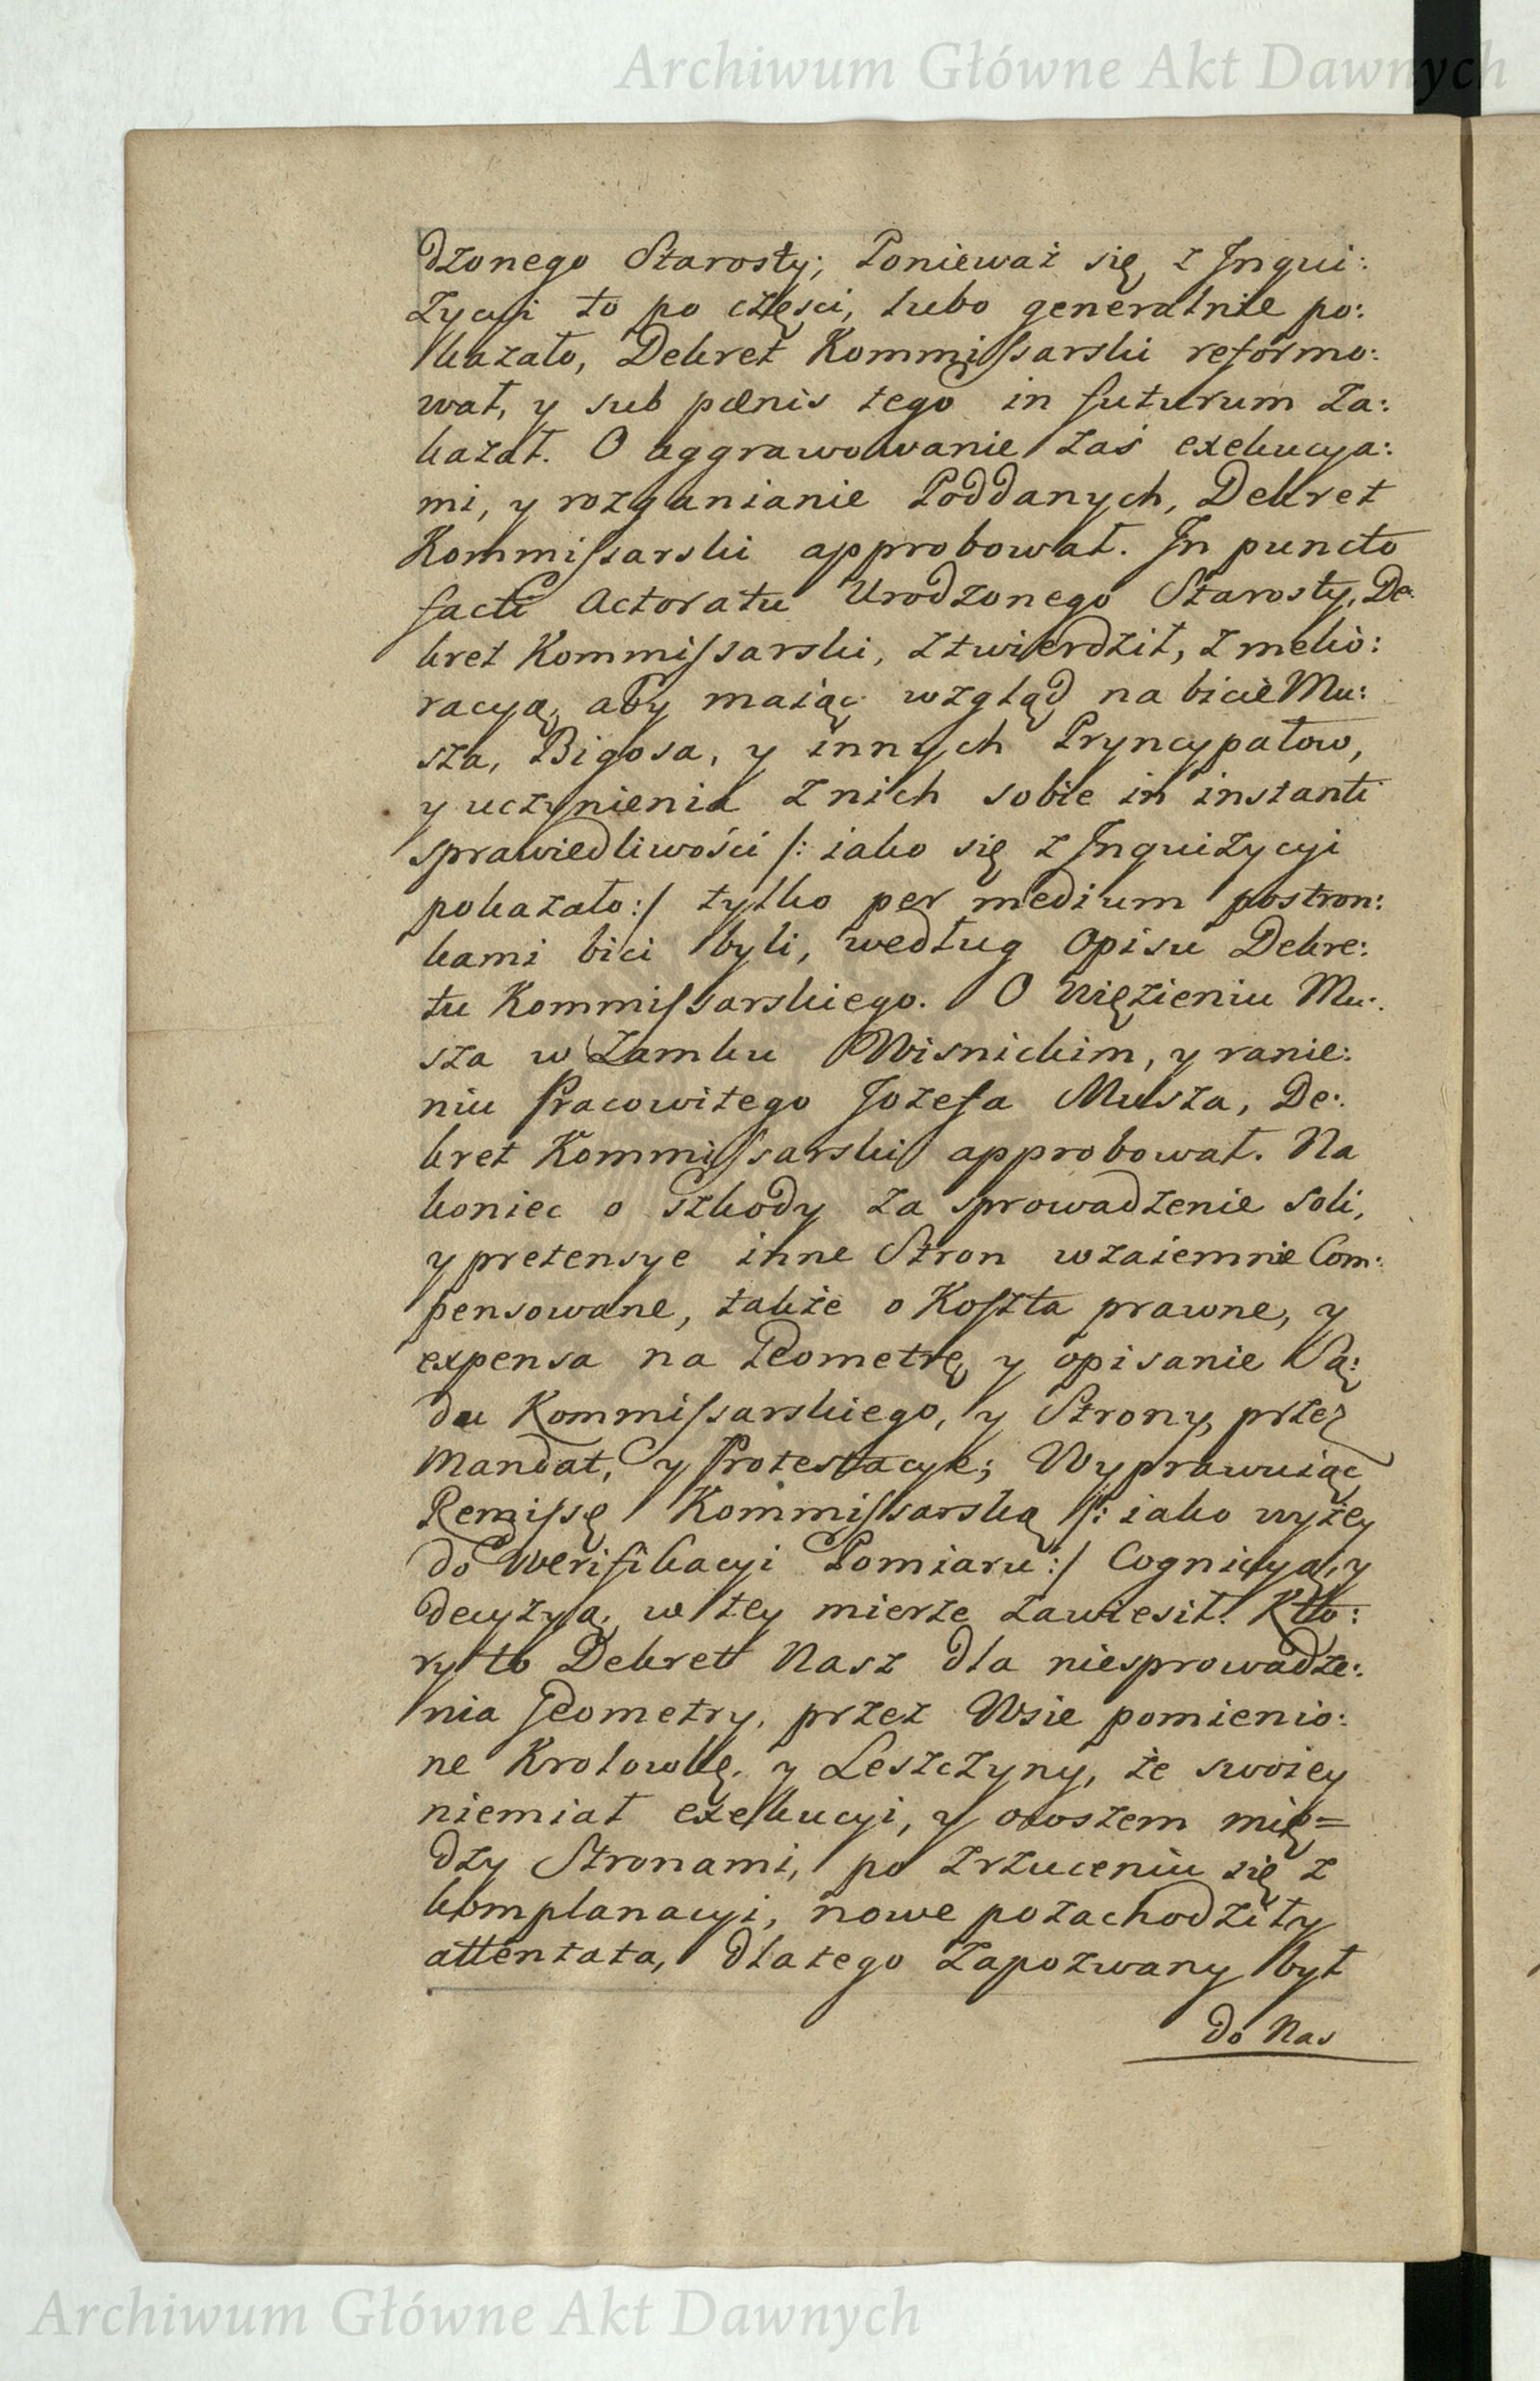 Archiwum Główne Akt Dawnych
dzonego Starosty; Ponieważ się z Inqui:
zycyi to po części, lubo generalnie po:
kazało, Dekret Kommissarski reformo:
wał, y sub pœnis tego in futurum za:
kazał. O aggrawowanie zaś exekucya:
mi, y rozganianie Poddanych, Dekret
Kommissarski approbował. In puncto
facti Actoratu Urodzonego Starosty, De:
kret Kommissarski, ztwierdził, z melio:
racyą, aby maiąc wzgląd na bicie Mu:
sza, Bigosa, y innych Pryncypałow,
y uczynienia z nich sobie in instanti
sprawiedliwości /: iako się z Inquizycyi
pokazało :/ tylko per medium postron:
kami bici byli, według Opisu Dekre:
tu Kommissarskiego. O Więzieniu Mu:
sza w Zamku Wisnickim, y ranie:
niu Pracowitego Jozefa Musza, De:
kret Kommissarski approbował. Na
koniec o szkody za sprowadzenie soli,
y pretensye inne Stron wzaiemnie Com:
pensowane, także o Koszta prawne, y
expensa na Jeometrę y opisanie Są:
du Kommissarskiego, y Strony, przez
Mandat, y Protestacye; Wyprawuiąc
Remissę Kommissarską /: iako wyżey
do Werifikacyi Pomiaru :/ Cognicyą, y
decyzyą, w tey mierze zawiesił. Kto:
ry to Dekret Nasz dla niesprowadze:
nia Jeometry, przez Wsie pomienio:
ne Krolowkę, y Leszczyny, że swoiey
niemiał exekucyi, y owszem mię=
dzy Stronami, po zrzuceniu się z
komplanacyi, nowe pozachodziły
attentata, dlatego zapozwany był
do Nas
Archiwum Główne Akt Dawnych